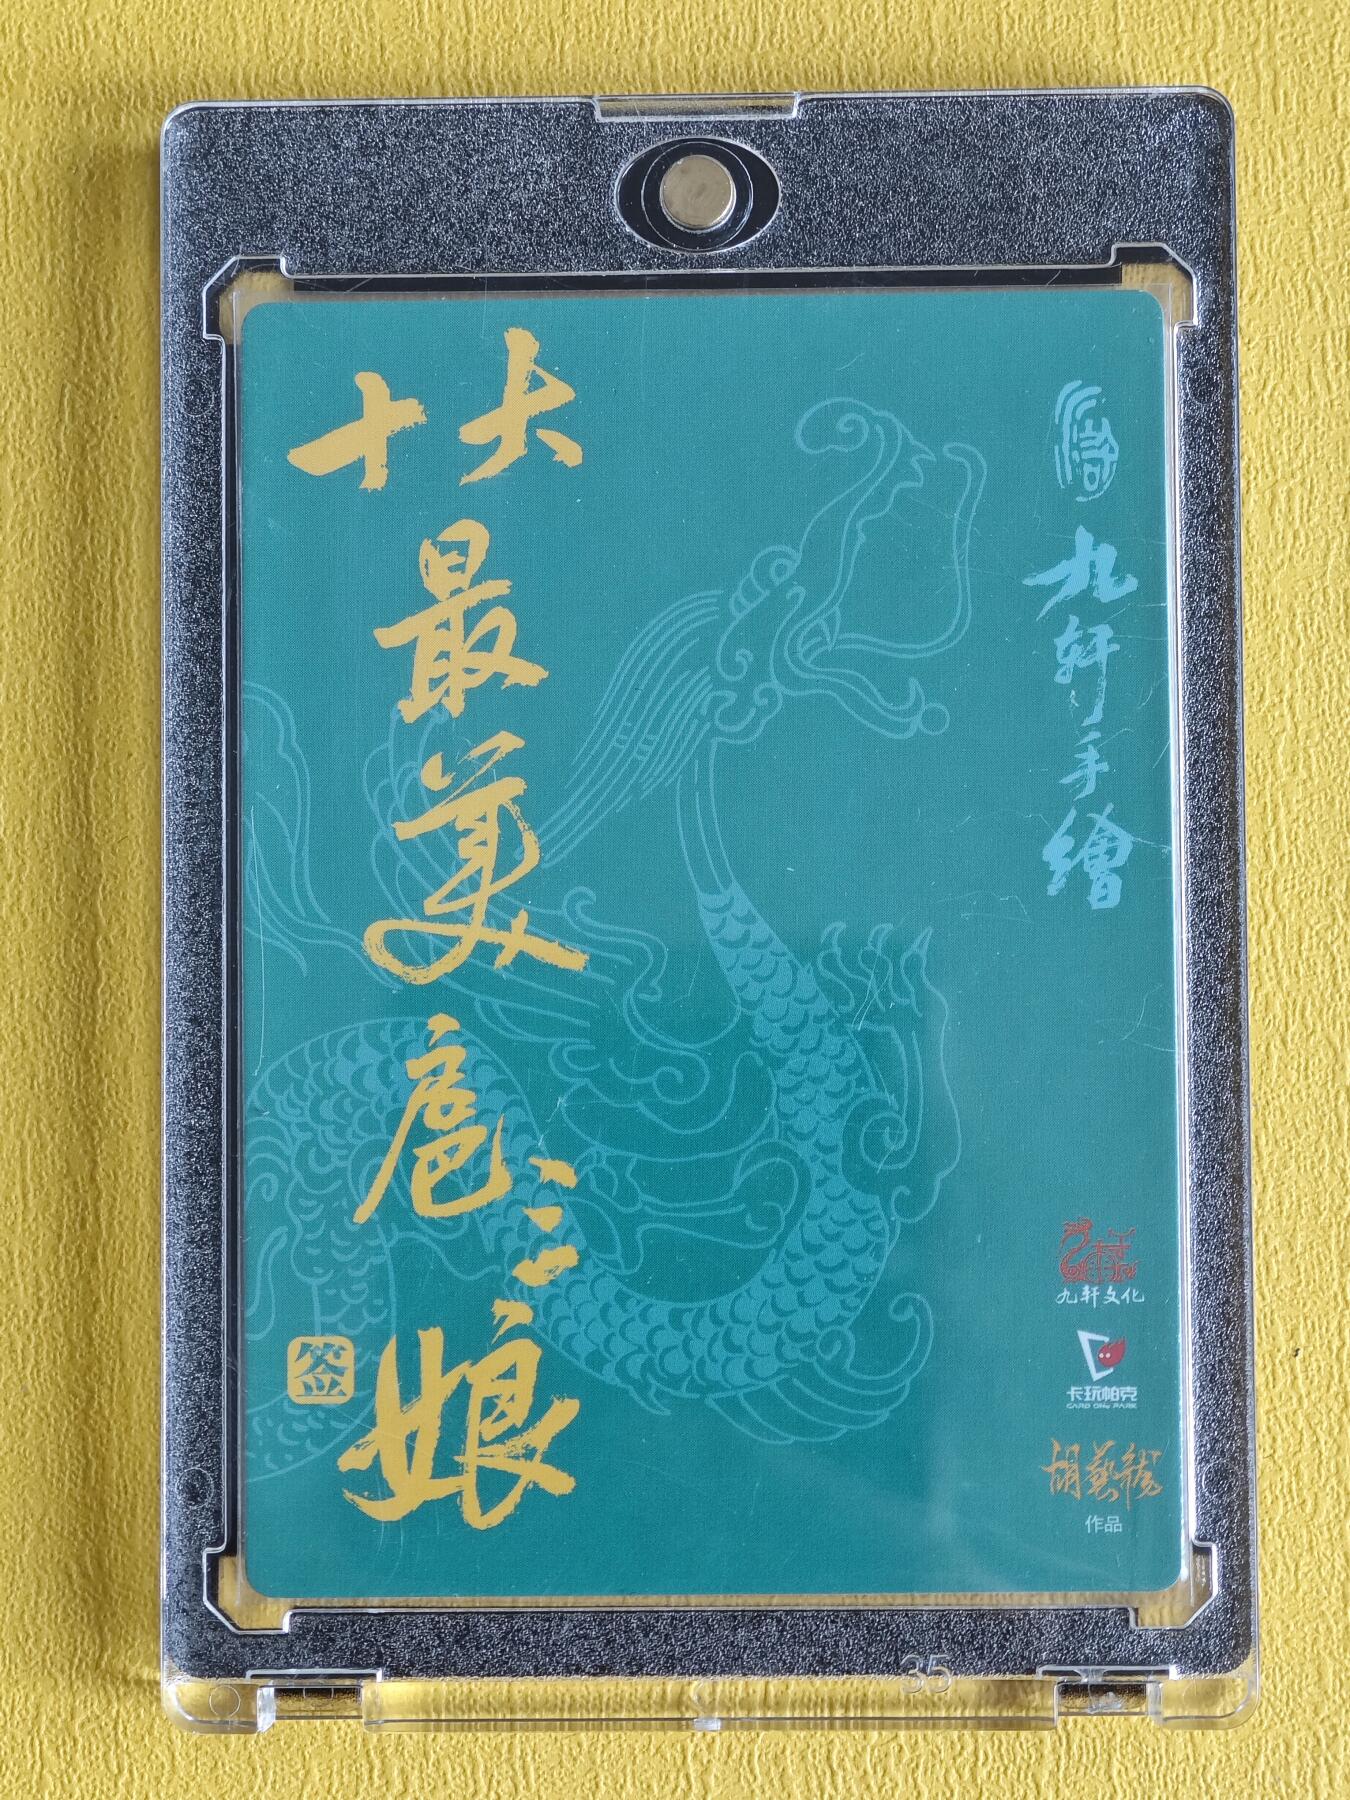 十大
最
美
扈
三
娘
签
九轩手繪
九轩文化
卡玩帕克
CARD ONe PARK
作品
35